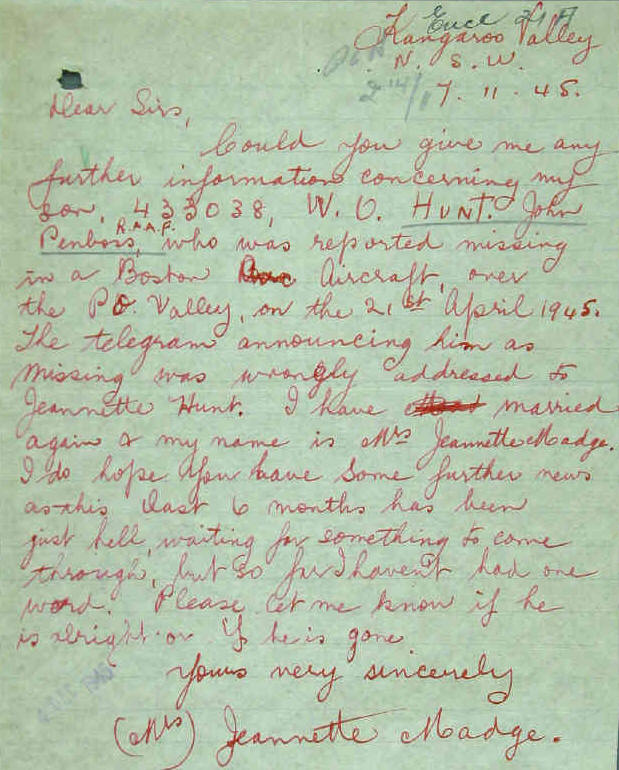 Encl 21A
Kangaroo Valley
N. S. W.
7. 11. 45.
Dear Sirs,
Could you give me any
further information concerning my
son, 433038, W. O. HUNT. John
R.A.A.F.
Penboss, who was reported missing
in a Boston Aircraft, over
the PO. Valley, on the 21st April 1945.
The telegram announcing him as
missing was wrongly addressed to
Jeannette Hunt. I have married
again & my name is Mrs Jeannette Madge.
I do hope you have some further news
as this last 6 months has been
just hell, waiting for something to come
through, but so far I haven't had one
word. Please let me know if he
is alright or if he is gone
Yours very sincerely
(Mrs) Jeannette Madge.